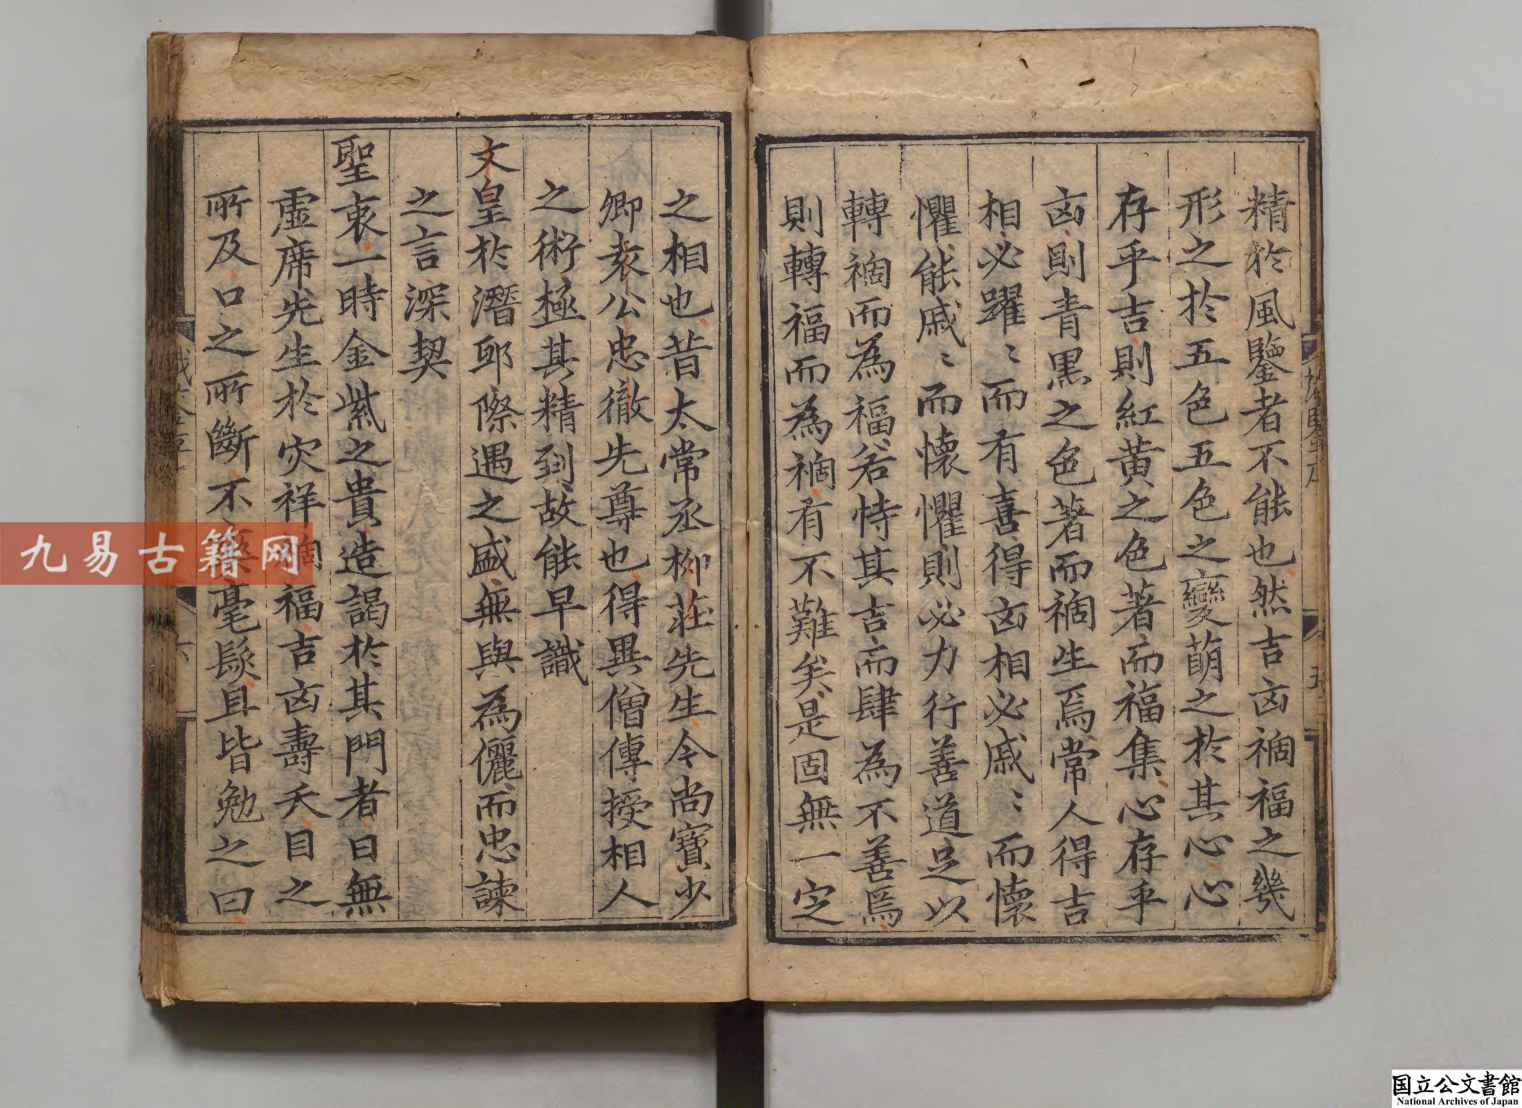 精於風鑒者不能也然吉㐫禍福之幾
形之於五色五色之變萌之於其心心
存乎吉則紅黃之色著而福集心存乎
㐫則青黑之色著而禍生焉常人得吉
相必躍〻而有喜得㐫相必戚〻而懷
懼能戚〻而懷懼則必力行善道足以
轉禍而為福若恃其吉而肆為不善焉
則轉福而為禍有不難矣是固無一定
之相也昔太常丞柳莊先生今尚寶少
卿袁公忠徹先尊也得異僧傳授相人
之術極其精到故能早識
文皇於潛邸際遇之盛無與為儷而忠諫
之言深契
聖衷一時金紫之貴造謁於其門者日無
虛席先生於灾祥禍福吉㐫壽夭目之
所及口之所斷不毫髮且皆勉之曰
九易古籍网
国立公文書館
National Archives of Japan